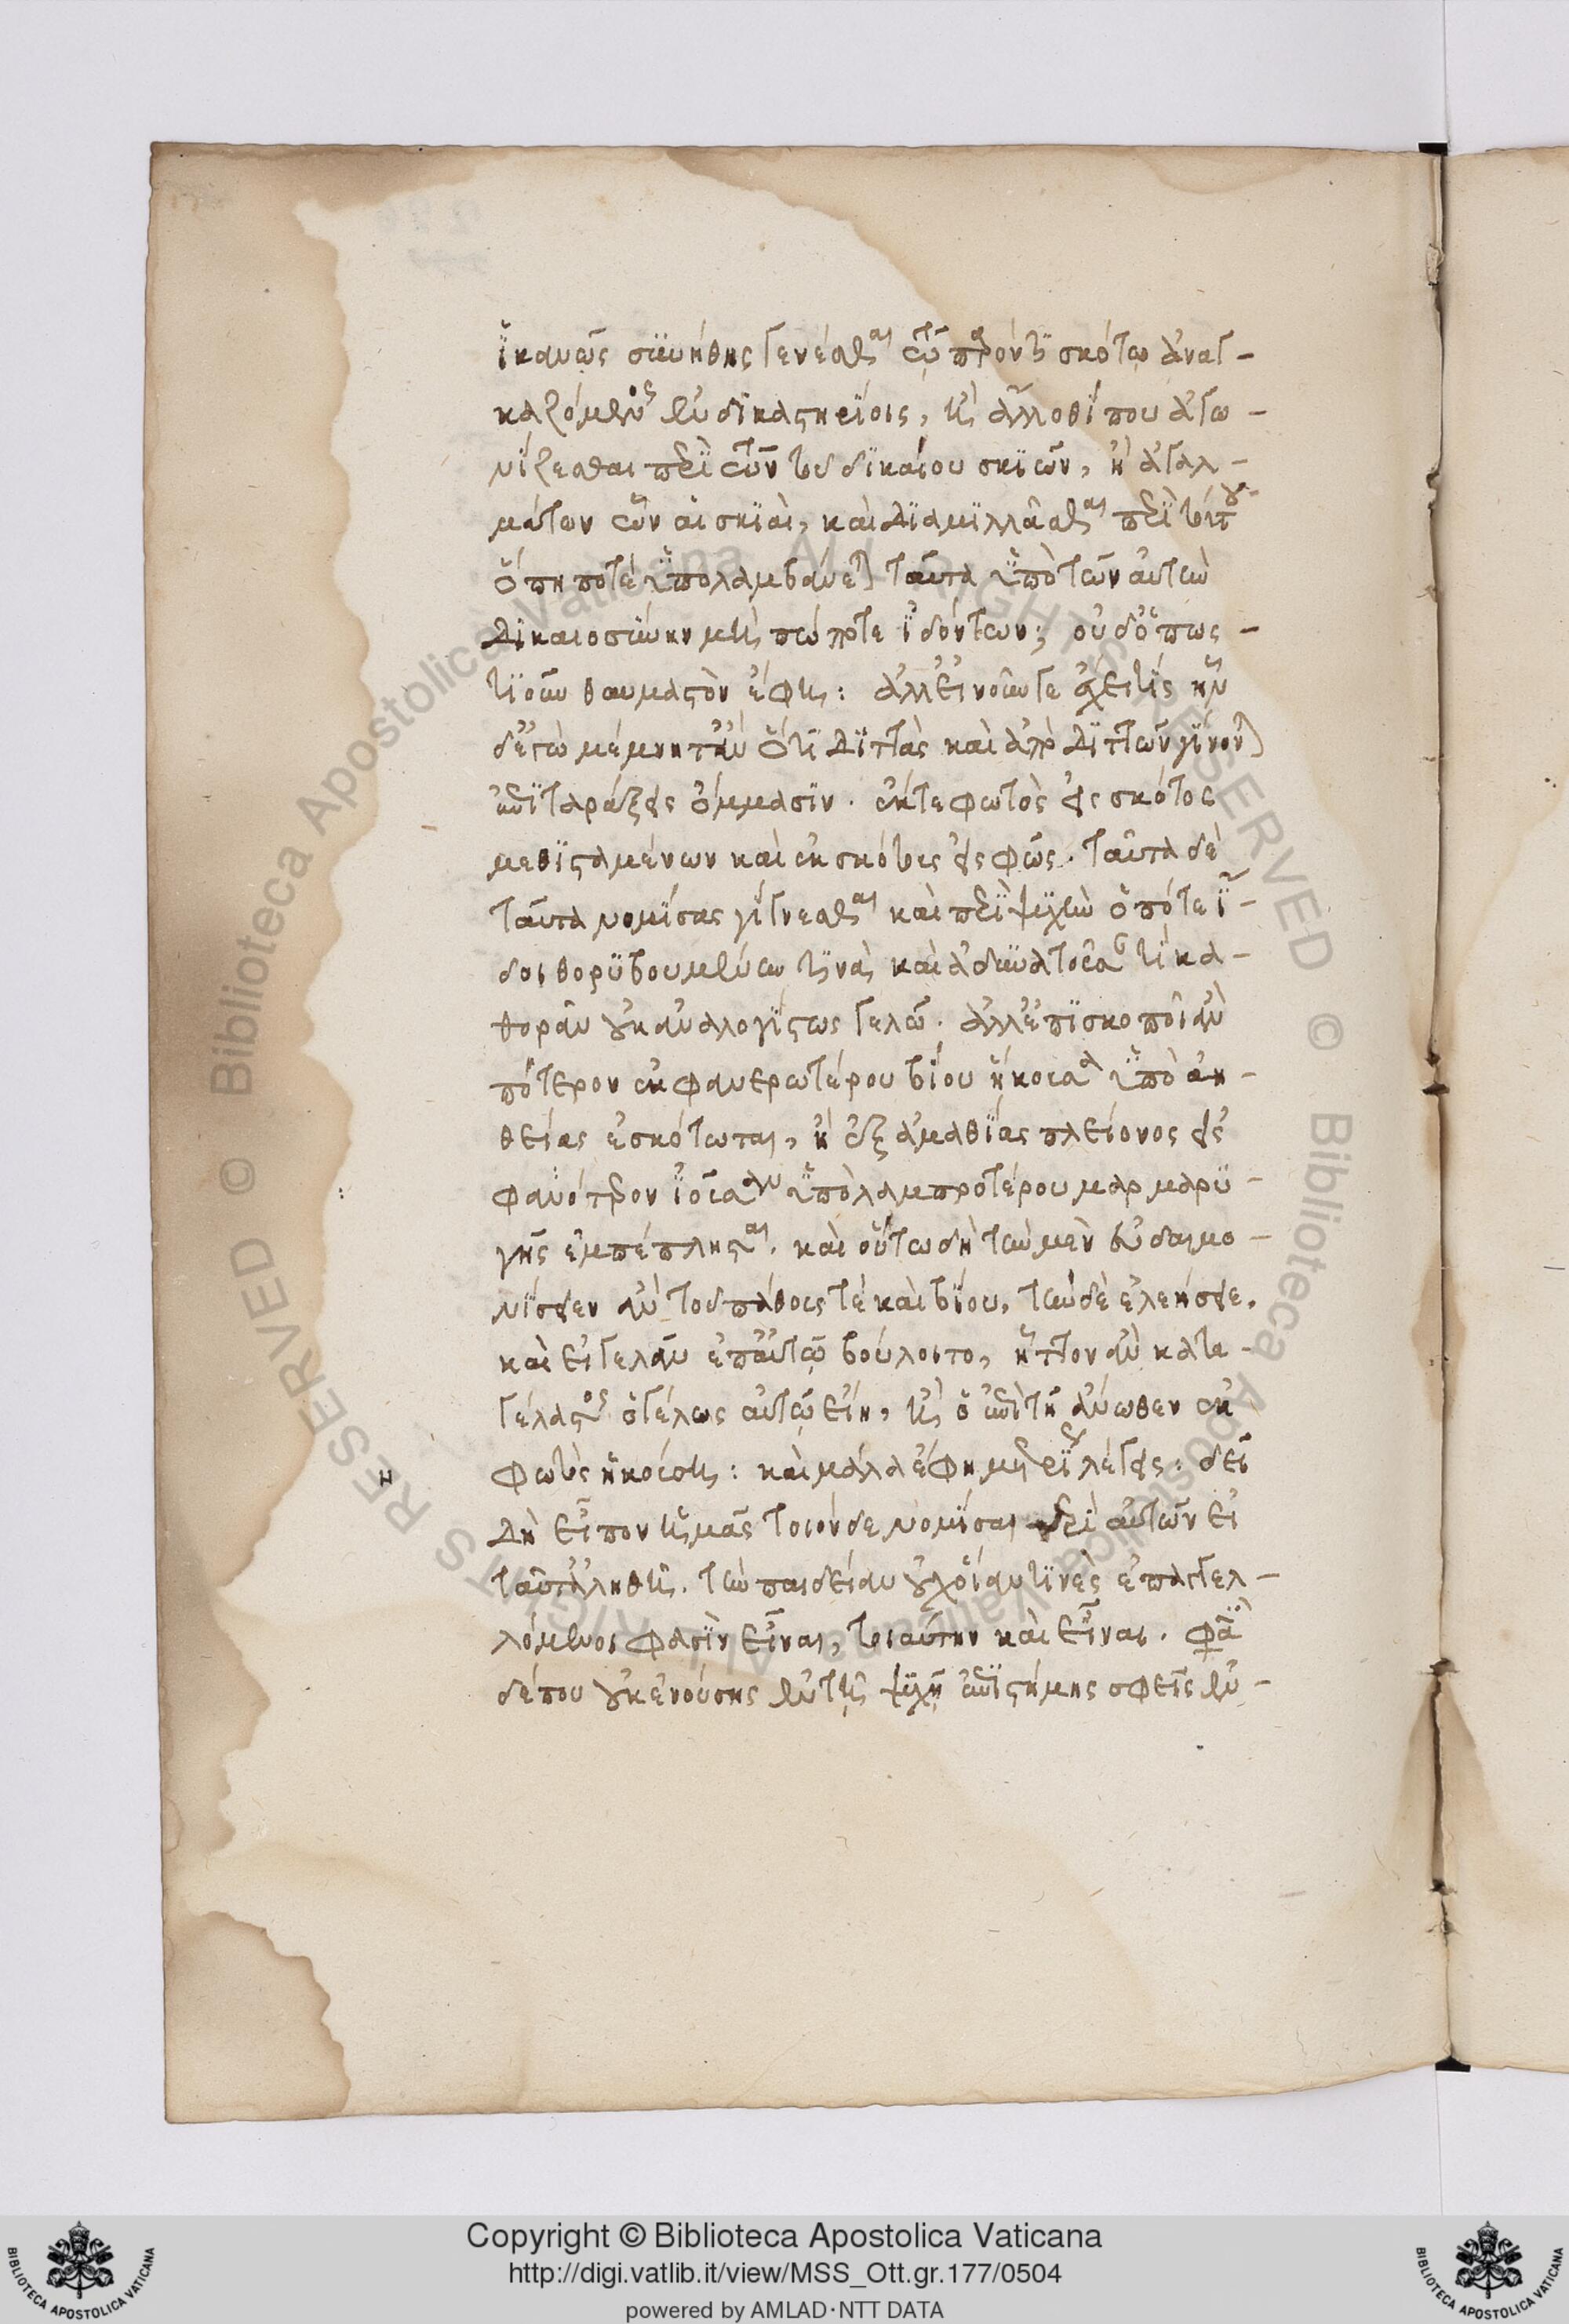 ἱκανῶς συνήθης γενέσθαι τῷ παρόντι σκότῳ ἀναγ-
καζόμενος ἐν δικαστηρίοις, ἢ ἄλλοθί που ἀγω-
νίζεσθαι περὶ τῶν τοῦ δικαίου σκιῶν, ἢ ἀγαλ-
μάτων ὧν αἱ σκιαὶ, καὶ διαμιλλᾶσθαι περὶ τούτου
ὅπη ποτὲ ὑπολαμβάνεται ταῦτα ὑπὸ τῶν αὐτὴν
δικαιοσύνην μὴ πώποτε ἰδόντων; οὐδ' ὅπως-
τιοῦν θαυμαστὸν ἔφη: ἀλλ' εἰ νοῦν γε ἔχει τίς ἦν
δ' ἐγὼ μέμνητ' ἂν ὅτι διτταὶ καὶ ἀπὸ διττῶν γίνονται
ἐπιταράξεις ὄμμασιν. ἔκ τε φωτὸς εἰς σκότος
μεθισταμένων καὶ ἐκ σκότους εἰς φῶς. ταῦτα δὲ
ταῦτα νομίσας γίγνεσθαι καὶ περὶ ψυχὴν ὁπότε ἴ-
δοι θορυβουμένην τινὰ καὶ ἀδυνατοῦσαν τί κα-
θορᾶν οὐκ ἂν ἀλογίστως γελῷ. ἀλλ' ἐπισκοποῖ ἂν
πότερον ἐκ φανερωτέρου βίου ἥκουσα ὑπὸ ἀη-
θείας ἐσκότωται, ἢ ἐξ ἀμαθίας πλείονος εἰς
φανότερον ἰοῦσαν ὑπὸ λαμπροτέρου μαρμαρυ-
γῆς ἐμπέπλησται. καὶ οὕτω δὴ τὴν μὲν εὐδαιμο-
νίσειεν ἂν τοῦ πάθους τὲ καὶ βίου, τὴν δὲ ἐλεήσειε.
καὶ εἰ γελᾶν ἐπ' αὐτῷ βούλοιτο, ἧττον ἂν κατα-
γέλαστος ὁ γέλως αὐτῷ εἴη, ἢ ὁ ἐπὶ τῇ ἄνωθεν ἐκ
φωτὸς ἡκούσῃ: καὶ μάλα ἔφη μετρίως λέγεις: δεῖ
δὴ εἶπον ἡμᾶς τοιόνδε νομίσαι περὶ αὐτῶν εἰ
ταῦτ' ἀληθῆ. τὴν παιδείαν οὐχ' οἵαν τινὲς ἐπαγγελ-
λόμενοι φασὶν εἶναι, τοιαύτην καὶ εἶναι. φασὶ
δέ που οὐκ ἐνούσης ἐν τῇ ψυχῇ ἐπιστήμης σφεῖς ἐν-
Copyright © Biblioteca Apostolica Vaticana
http://digi.vatlib.it/view/MSS_Ott.gr.177/0504
powered by AMLAD·NTT DATA